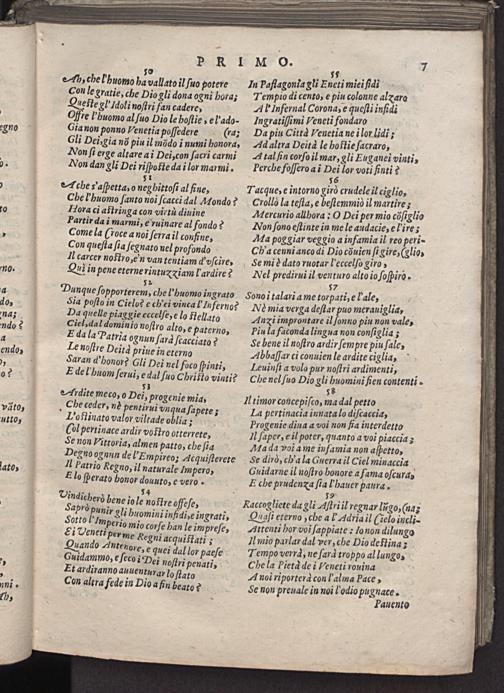 PRIMO. 7
50
Ah, che l'huomo ha vallato il suo potere
Con le gratie, che Dio gli dona ogni hora;
Queste gl'Idoli nostri fan cadere,
Offre l'huomo al suo Dio le hostie, e l'ado-
Gia non ponno Venetia possedere (ra;
Gli Dei, gia nõ piu il mõdo i numi honora,
Non si erge altare a i Dei, con sacri carmi
Non dan gli Dei risposte da i lor marmi.
51
A che s'aspetta, o neghittosi al fine,
Che l'huomo santo noi scacci dal Mondo?
Hora ci astringa con virtù diuine
Partir da i marmi, e ruinare al fondo?
Come la Croce a noi serra il confine,
Con questa sia segnato nel profondo
Il carcer nostro, e'n van tentiam d'vscire,
Quì in pene eterne rintuzziam l'ardire?
52
Dunque sopporterem, che l'huomo ingrato
Sia posto in Cielo? e ch'ei vinca l'Inferno?
Da quelle piaggie eccelse, e lo stellato
Ciel, dal dominio nostro alto, e paterno,
E da la Patria ognun sarà scacciato?
Le nostre Deità priue in eterno
Saran d'honor? Gli Dei nel foco spinti,
E de l'huom serui, e dal suo Christo vinti?
53
Ardite meco, o Dei, progenie mia,
Che ceder, nè pentirui vnqua sapete;
L'ostinato valor viltade oblia;
Col pertinace ardir vostro otterrete,
Se non Vittoria, almen patto, che sia
Degno ognun de l'Empireo; Acquisterete
Il Patrio Regno, il naturale Impero,
E lo sperato honor douuto, e vero.
54
Vindicherò bene io le nostre offese,
Saprò punir gli huomini infidi, e ingrati,
Sotto l'Imperio mio corse han le imprese,
Ei Veneti per me Regni acquistati;
Quando Antenore, e quei dal lor paese
Guidammo, e seco i Dei nostri penati,
Et ardiranno auuenturar lo stato
Con altra fede in Dio a fin beato?
55
In Paflagonia gli Eneti miei fidi
Tempio di cento, e piu colonne alzaro
A l'Infernal Corona, e questi infidi
Ingratissimi Veneti fondaro
Da piu Città Venetia ne i lor lidi;
Ad altra Deità le hostie sacraro,
A tal fin corso il mar, gli Euganei vinti,
Perche fossero a i Dei lor voti finti?
56
Tacque, e intorno girò crudele il ciglio,
Crollò la testa, e bestemmiò il martire;
Mercurio allhora: O Dei per mio cõsiglio
Non sono estinte in me le audacie, e l'ire;
Ma poggiar veggio a infamia il reo peri-
Ch'a cenni anco di Dio cõuien si gire, (glio,
Se mi è dato ruotar l'eccelso giro,
Nel predirui il venturo alto io sospiro.
57
Sono i talari a me torpati, e l'ale,
Nè mia verga destar puo merauiglia,
Anzi improntare il sonno piu non vale,
Piu la faconda lingua non consiglia;
Se bene il nostro ardir sempre piu sale,
Abbassar ci conuien le ardite ciglia,
Leuinsi a volo pur nostri ardimenti,
Che nel suo Dio gli huomini sien contenti.
58
Il timor concepisco, ma dal petto
La pertinacia innata lo discaccia,
Progenie dina a voi non sia interdetto
Il saper, e il poter, quanto a voi piaccia;
Ma da voi a me infamia non aspetto,
Se dirò, ch'a la Guerra il Ciel minaccia
Guidarne il nostro honore a fama oscura,
E che prudenza sia l'hauer paura.
59
Raccogliete da gli Astri il regnar lũgo, (na;
Quasi eterno, che a l'Adria il Cielo incli-
Attenti hor voi sappiate: Io non dilungo
Il mio parlar dal ver, che Dio destina;
Tempo verrà, ne sarà troppo al lungo,
Che la Pietà de i Veneti rouina
A noi riporterà con l'alma Pace,
Se non preuale in noi l'odio pugnace.
Pauento